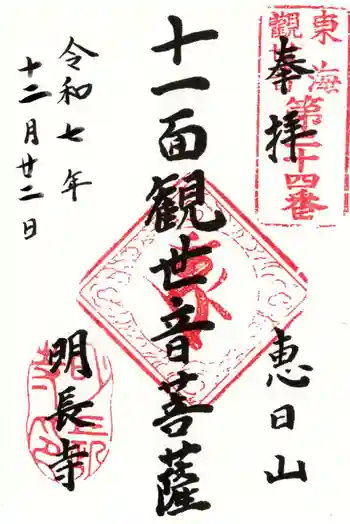 奉拝
東海
觀音
第三十四番
恵日山
十一面観世音菩薩
明長寺
令和七年
十二月廿二日